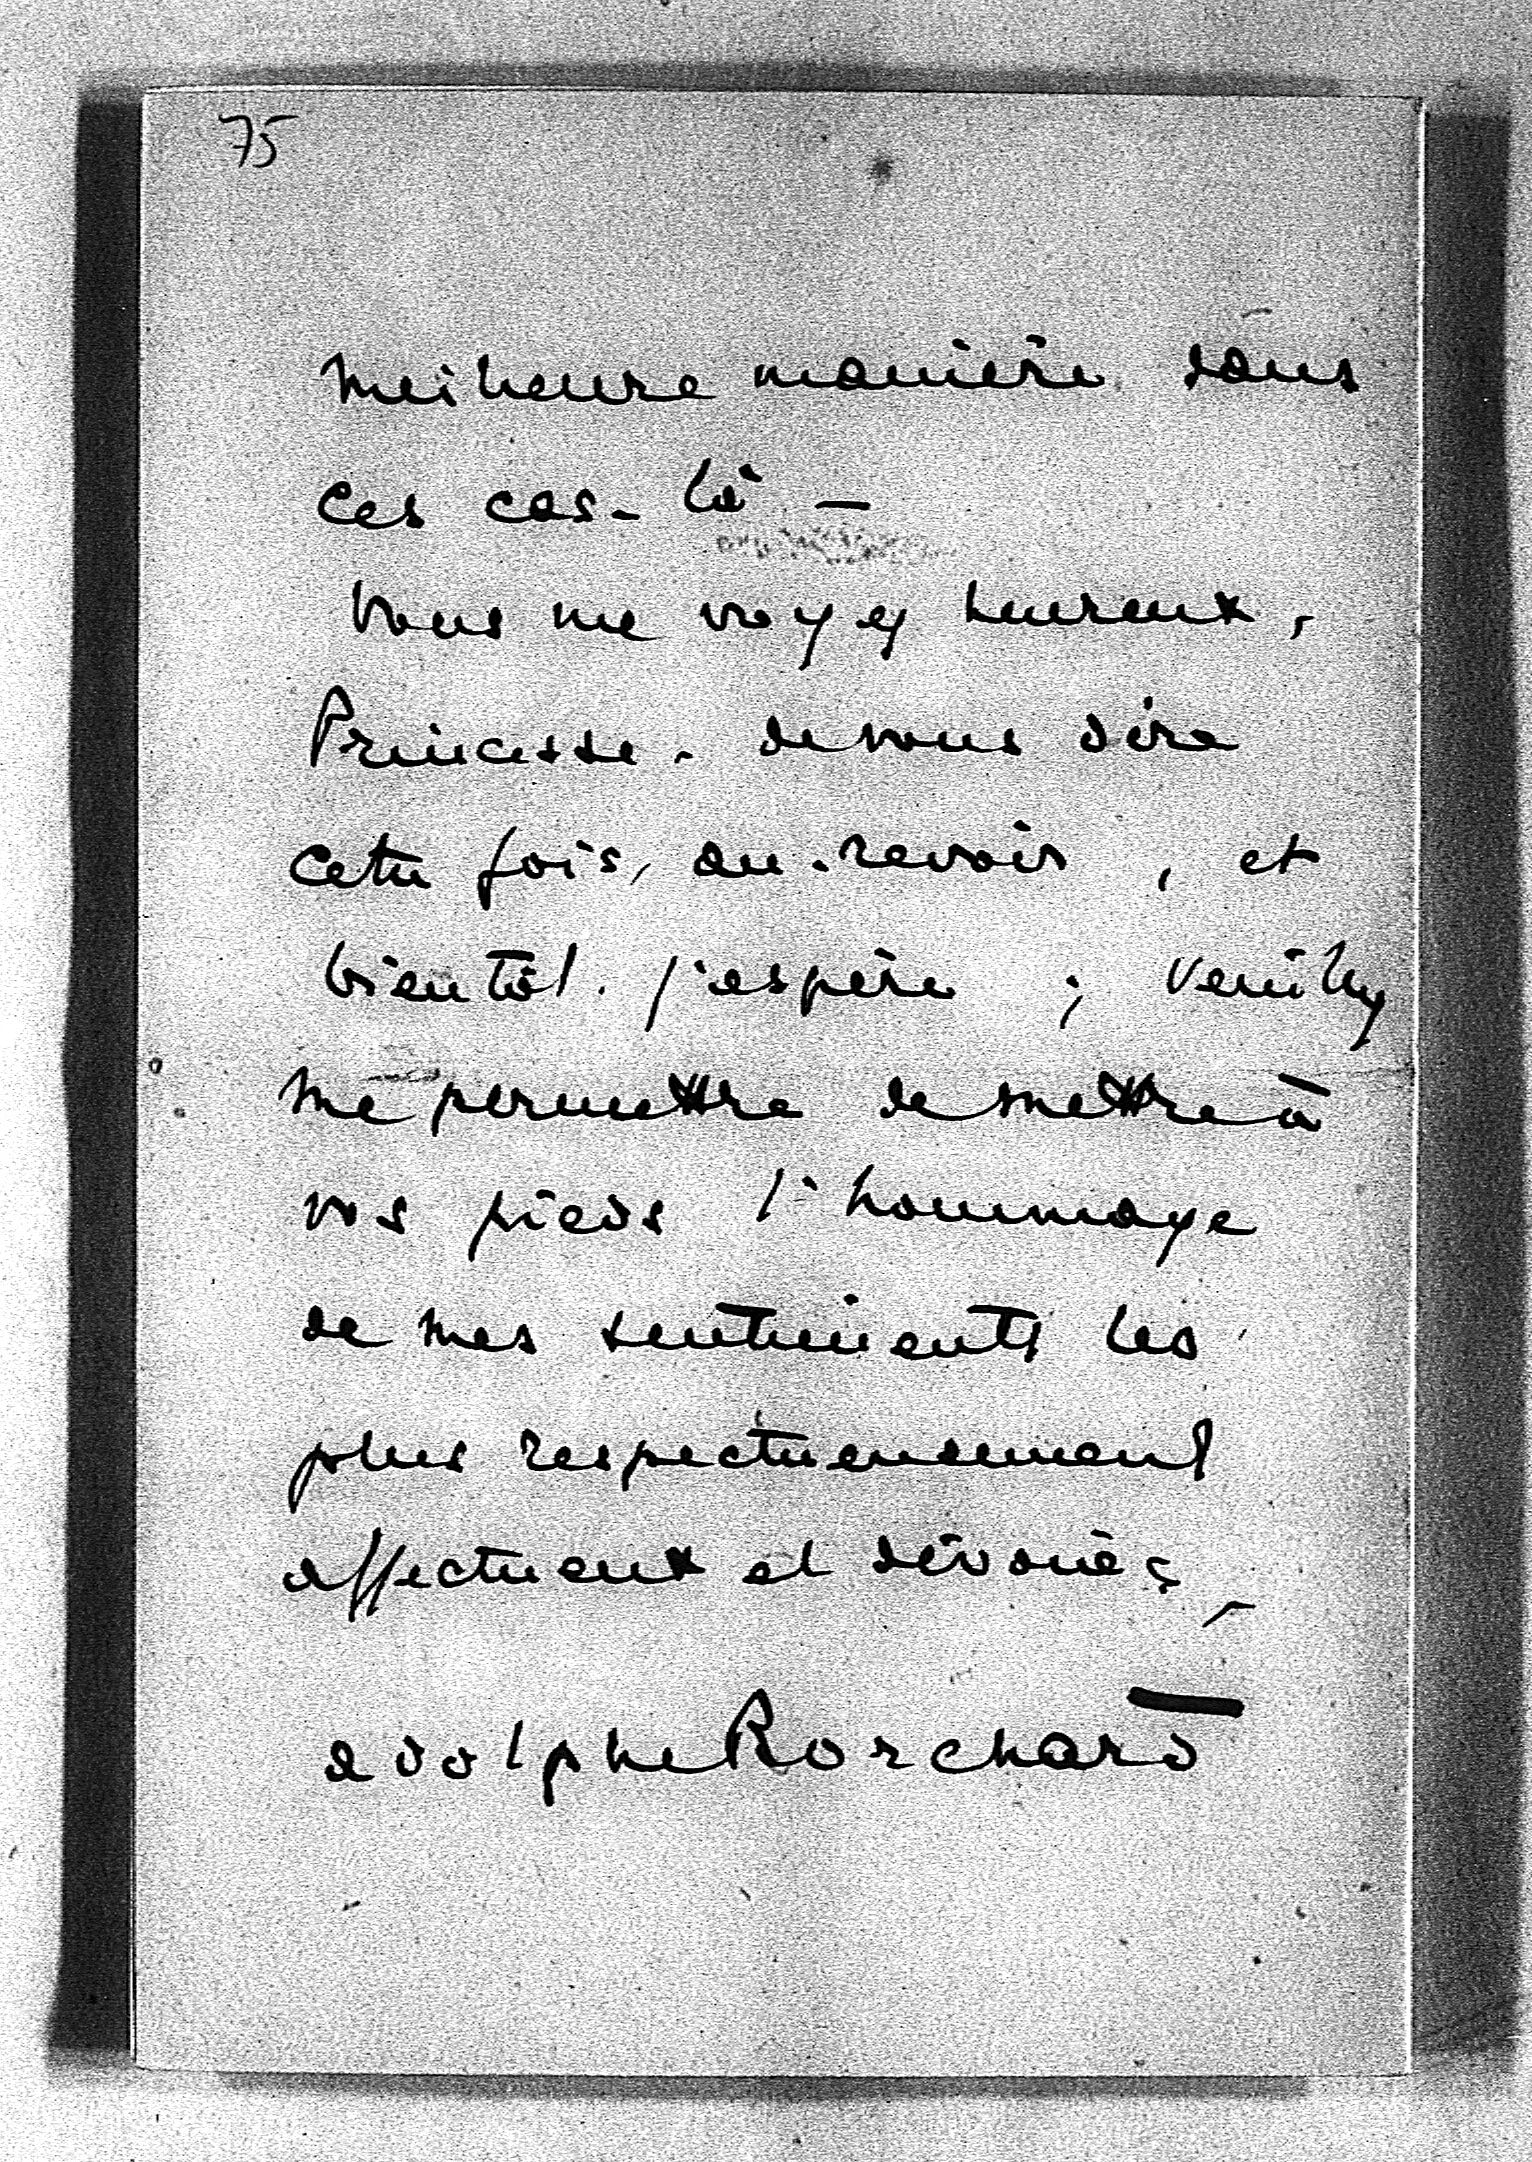 75
meilleure manière dans
ces cas-là —
Vous me voyez heureux,
Princesse, de vous dire
cette fois, au-revoir, et
bientôt, j'espère ; veuillez
me permettre de mettre à
vos pieds l'hommage
de mes sentiments les
plus respectueusement
affectueux et dévoués
adolphe Rorchard